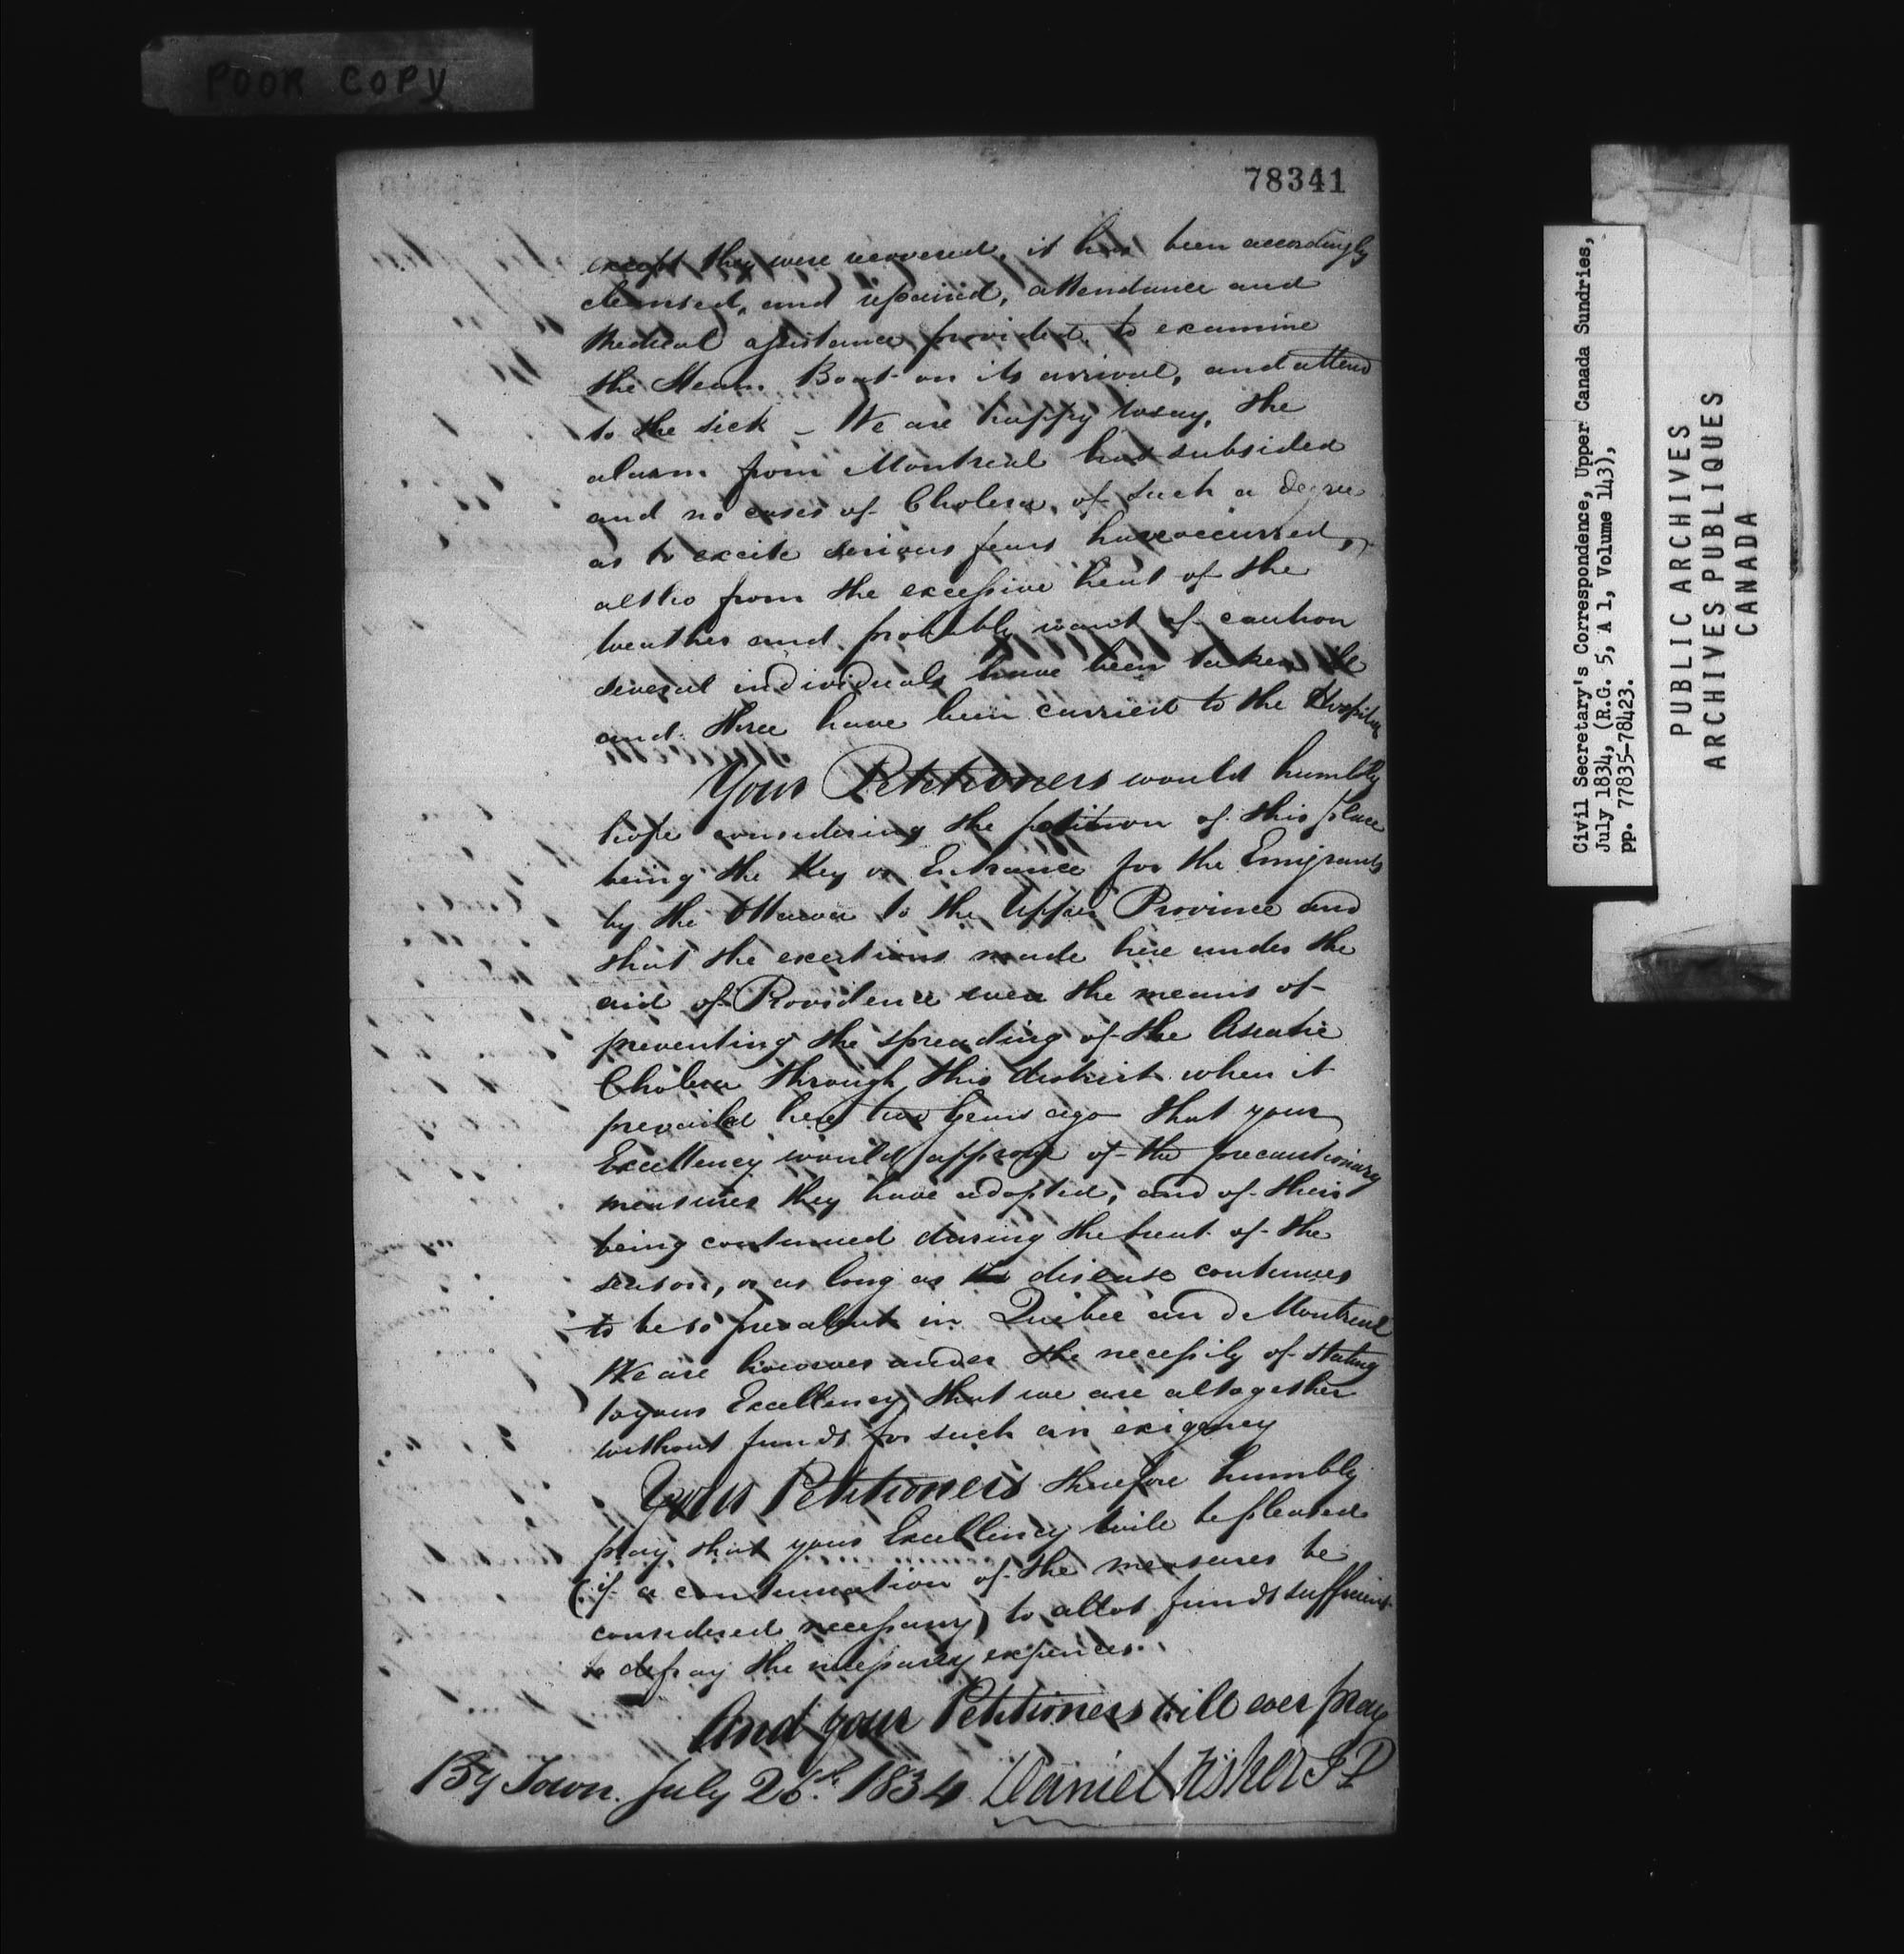 POOR COPY
78341
except they were recovered, it has been accordingly
cleansed, and repaired, attendance and
Medical assistance provided, to examine
the Steam Boat on its arrival, and attend
to the sick – We are happy to say, the
alarm from Montreal has subsided
and no cases of Cholera, of such a degree
as to excite serious fears have occurred,
altho from the excessive heat of the
weather and probably want of caution
several individuals have been taken ill
and three have been carried to the Hospital
Your Petitioners would humbly
hope considering the position of this place
being the Key or Entrance for the Emigrants
by the Ottawa to the Upper Province and
that the exertions made here under the
aid of Providence were the means of
preventing the spreading of the Asiatic
Cholera through this district when it
prevailed here two Years ago that your
Excellency would approve of the precautionary
measures they have adopted, and of their
being continued during the heat of the
season, or as long as the disease continues
to be so prevalent in Quebec and Montreal
We are however under the necessity of stating
to your Excellency, that we are altogether
without funds for such an exigency
Your Petitioners therefore humbly
pray that your Excellency will be pleased
(if a continuation of the measures be
considered necessary) to allot funds sufficient
to defray the necessary expences.
And your Petitioners will ever pray
By Town. July 26th. 1834 Daniel Fisher J P
Civil Secretary's Correspondence, Upper Canada Sundries,
July 1834, (R.G. 5, A 1, Volume 143),
pp. 77835-78423.
PUBLIC ARCHIVES
ARCHIVES PUBLIQUES
CANADA